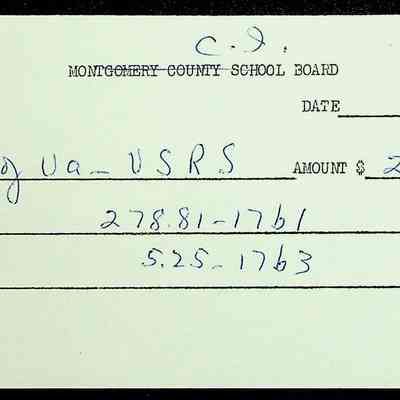 C.I.
MONTGOMERY COUNTY SCHOOL BOARD
DATE
of Va - VSRS AMOUNT $ 2
278.81-17b1
5.25-17b3